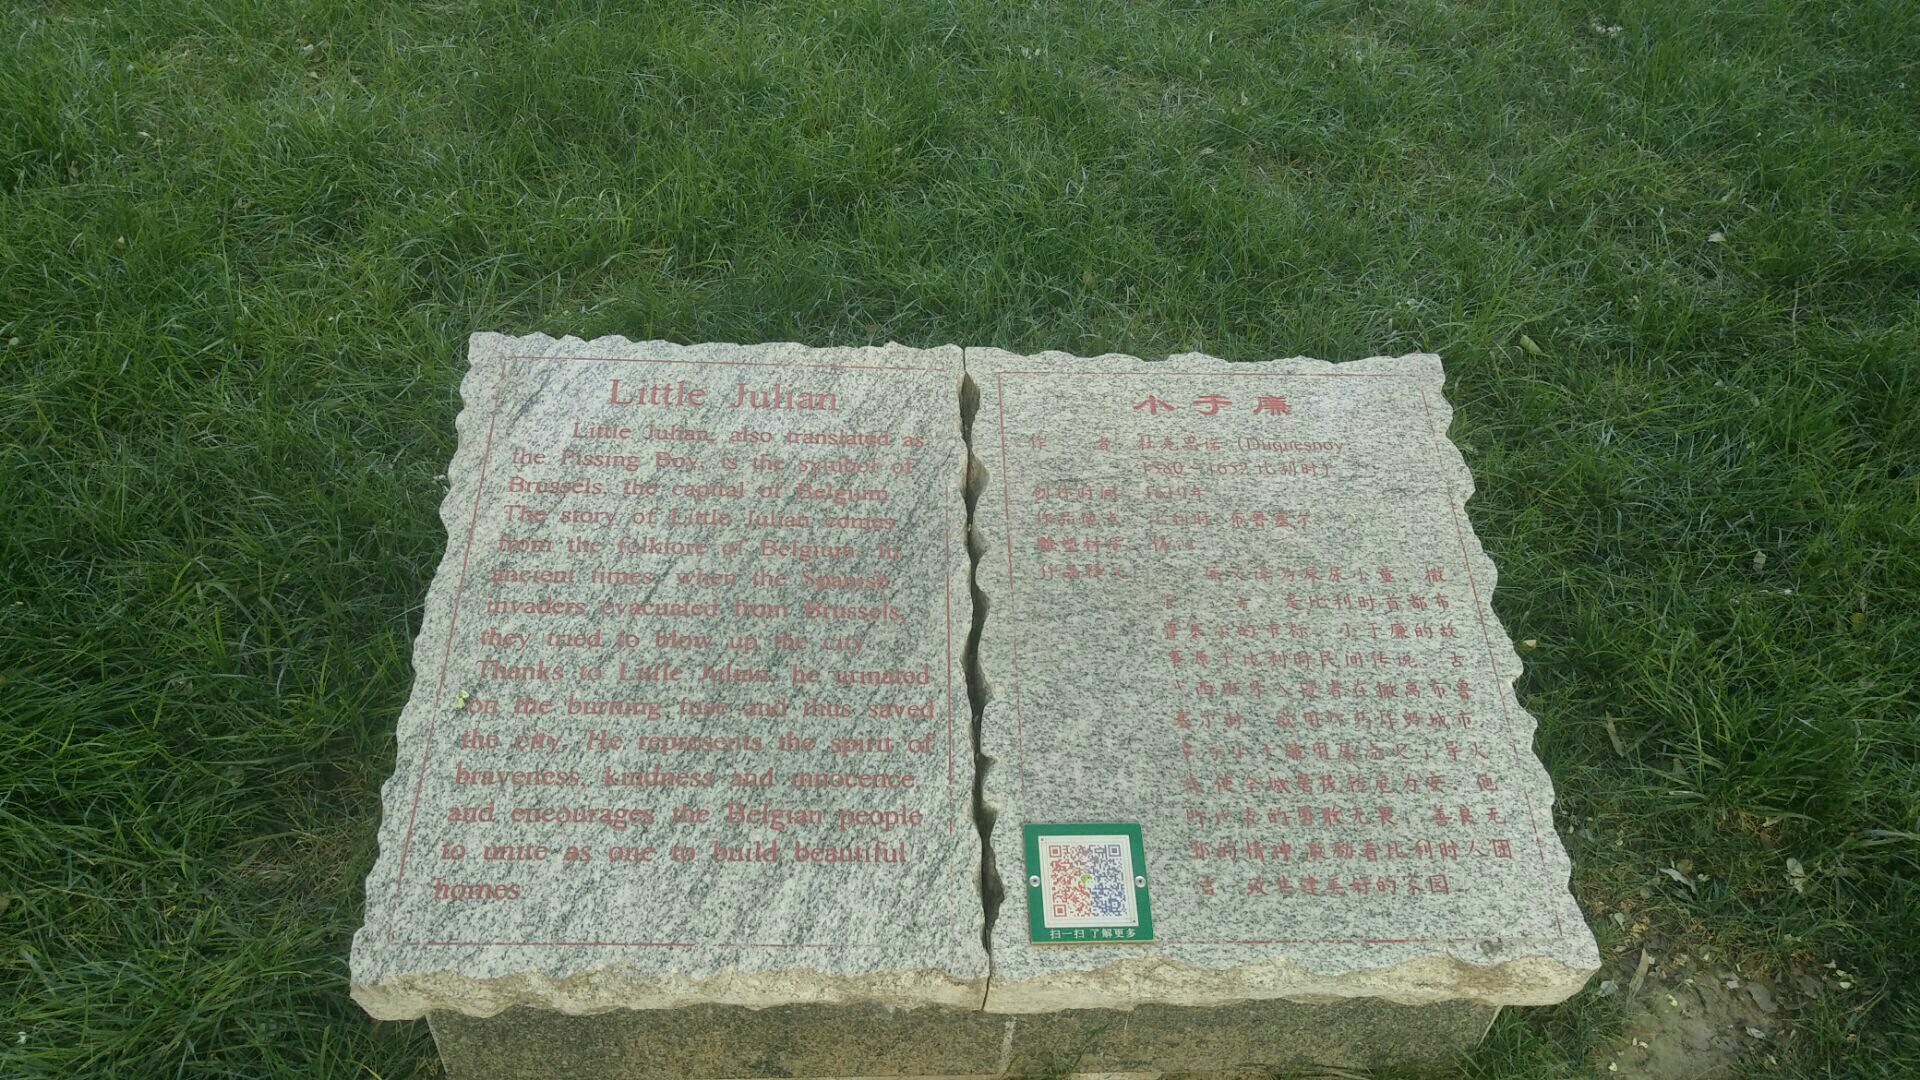 Little Julian
Little Julian, also translated as
the Pissing Boy, is the symbol of
Brussels, the capital of Belgium.
The story of Little Julian comes
from the folklore of Belgium. In
ancient times, when the Spanish
invaders evacuated from Brussels,
they tried to blow up the city.
Thanks to Little Julian, he urinated
on the burning fuse and thus saved
the city. He represents the spirit of
braveness, kindness and innocence,
and encourages the Belgian people
to unite as one to build beautiful
homes.
小于廉
作 者：杜克思诺（Duquesnoy
1580-1652 比利时）
创作时间：1619年
作品地点：比利时 布鲁塞尔
雕塑材质：
译为尿尿小童、撒
是比利时首都布
鲁塞尔的市标。小于廉的故
事源于比利时民间传说。古
西班牙入侵者在撤离布鲁
塞尔时，欲用炸药炸毁城市，
幸亏小于廉用尿浇灭了导火
使全城 转危为安。他
所代表的勇敢无畏，善良无
邪的精神，激励着比利时人团
结一致共建美好的家园。
扫一扫 了解更多